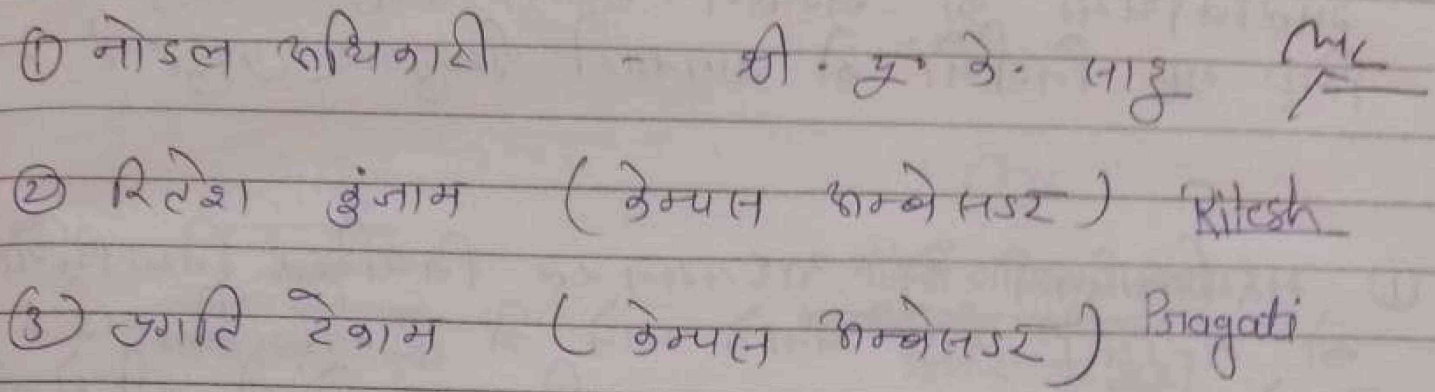 ① नोडल अधिकारी - श्री. यू. के. साहू
② रितेश कुंजाम (केम्पस अम्बेसडर) Ritesh
③ प्रगति टेकाम (केम्पस अम्बेसडर) Pragati